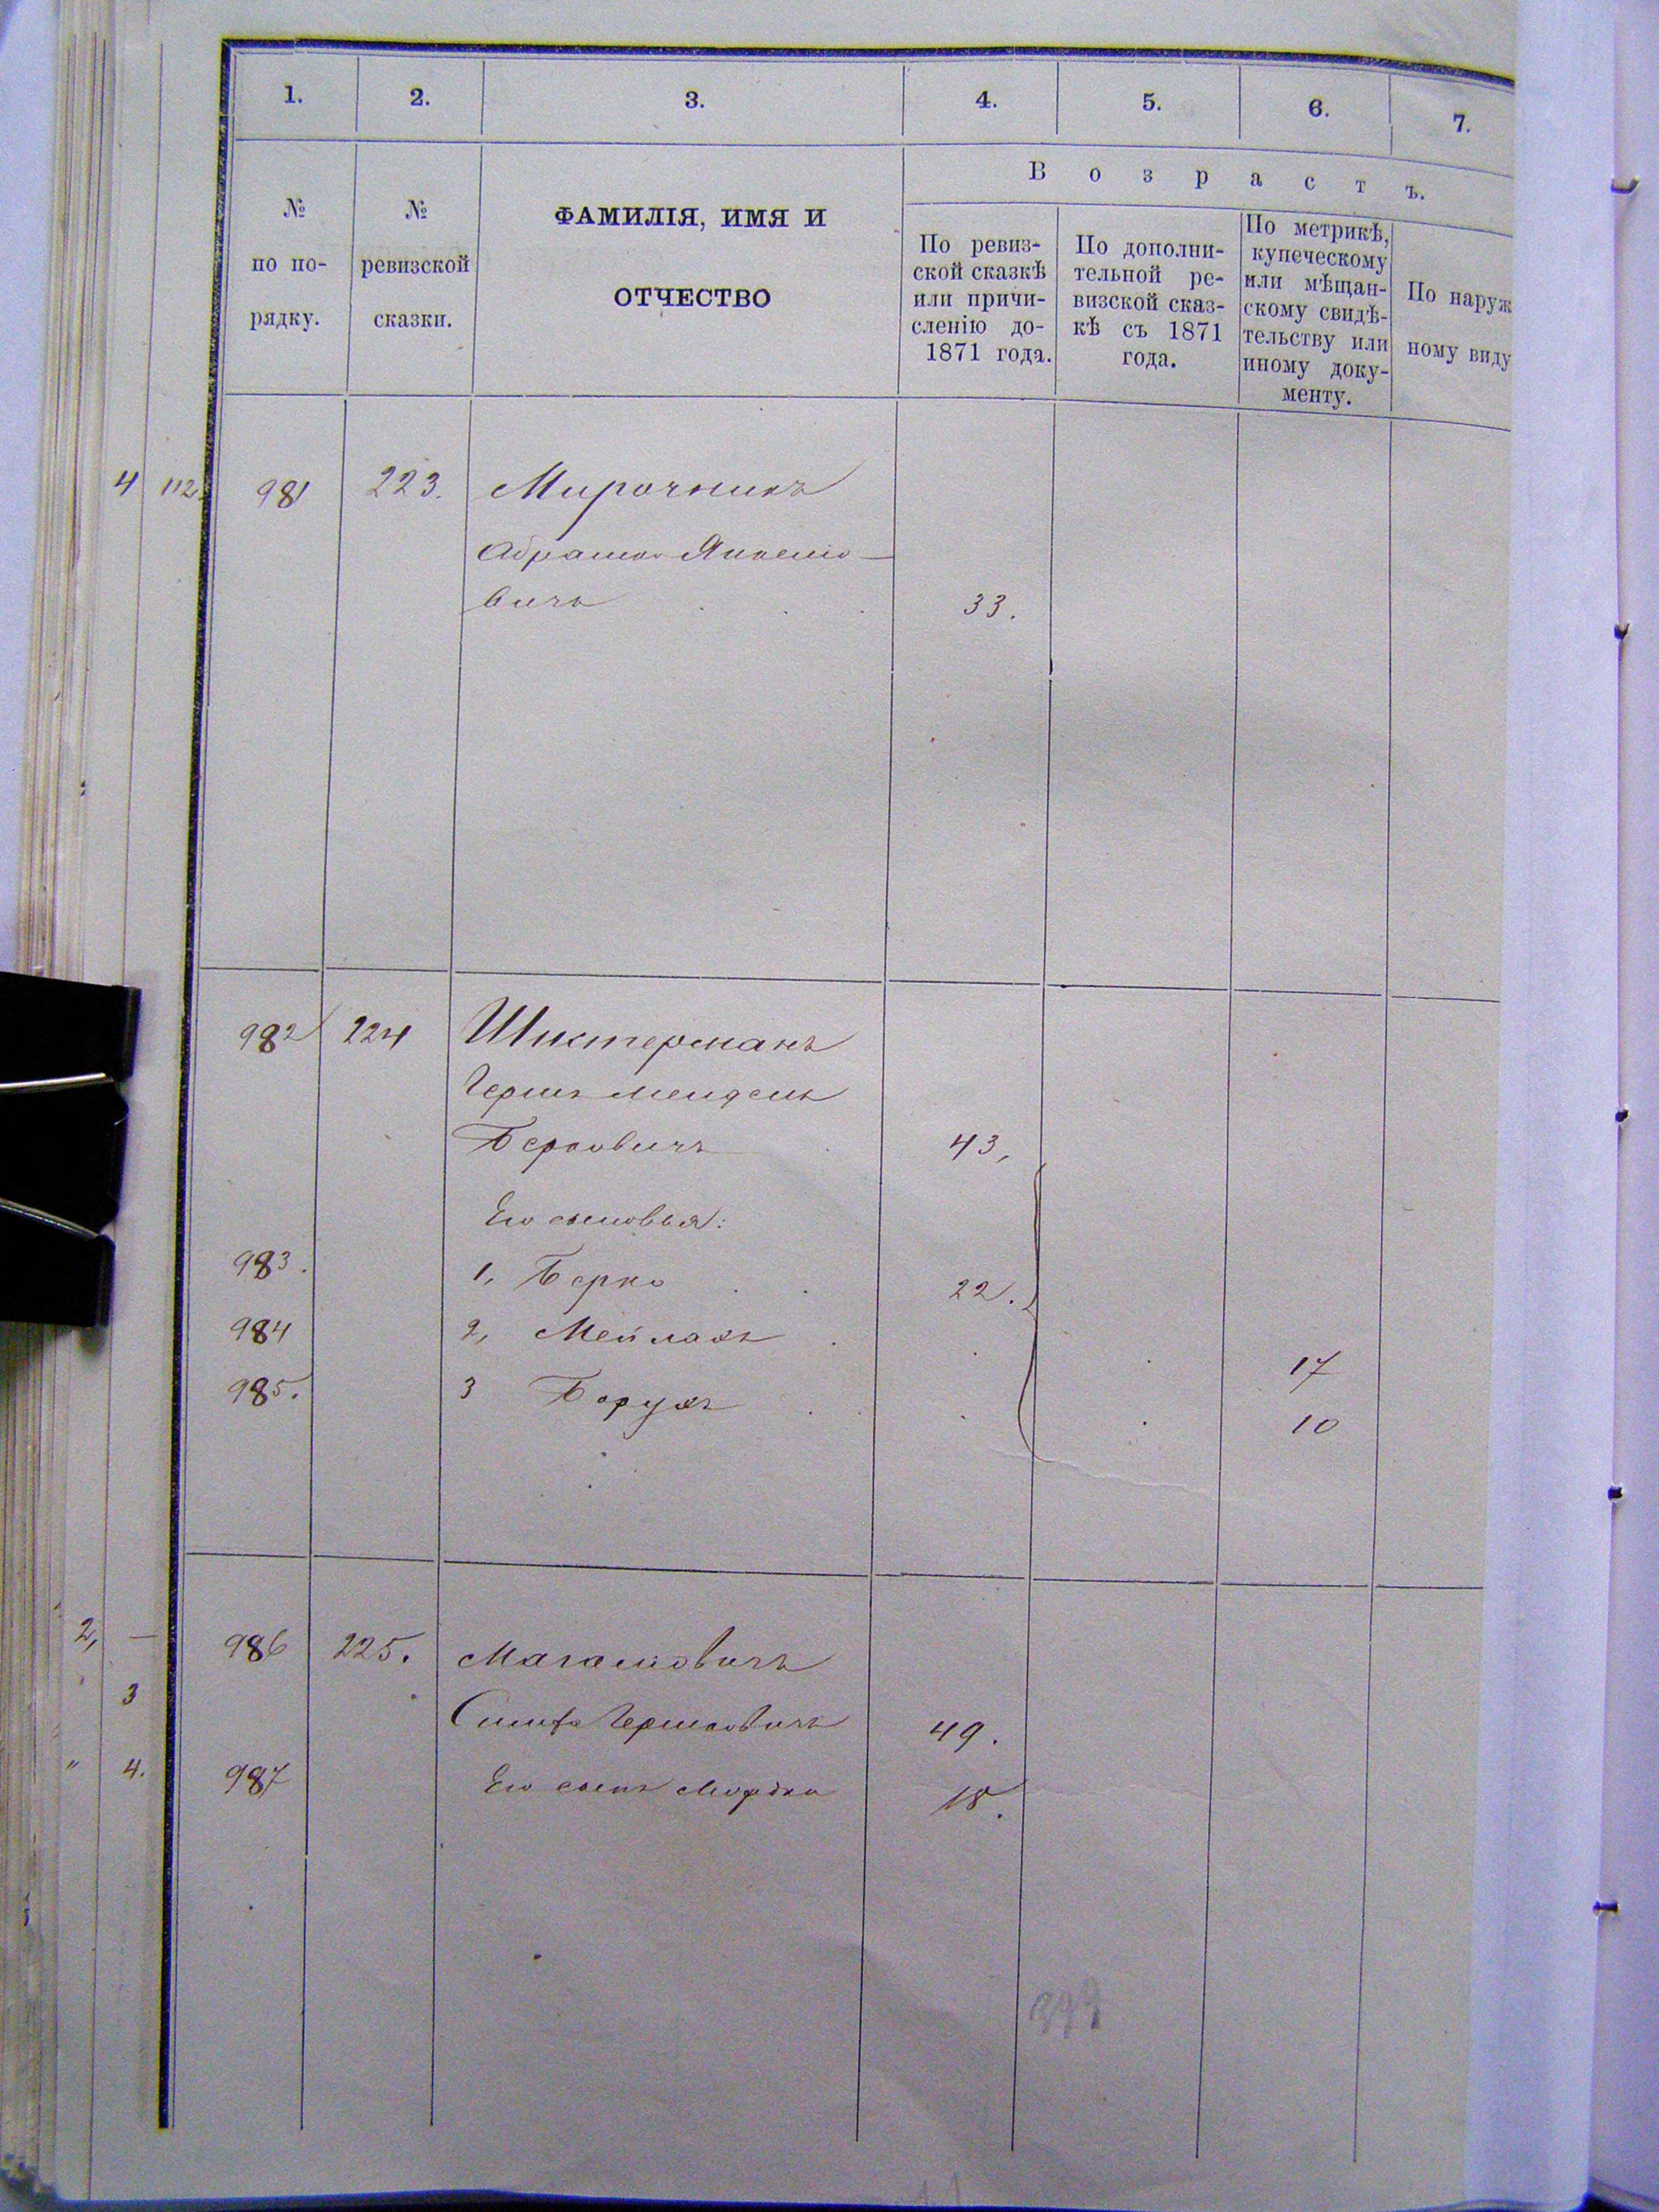 1. 2. 3. 4. 5. 6. 7.
В о з р а с т ъ.
№
по по-
рядку.
№
ревизской
сказки.
ФАМИЛІЯ, ИМЯ И
ОТЧЕСТВО
По ревиз-
ской сказкѣ
или причи-
сленію до-
1871 года.
По дополни-
тельной ре-
визской сказ-
кѣ съ 1871
года.
По метрикѣ,
купеческому
или мѣщан-
скому свидѣ-
тельству или
иному доку-
менту.
По наруж
ному виду
4 112 981 223. Мирочникъ
Абрамъ Янкеліо-
вичъ 33.
982 224 Шистерманъ
Гершъ Мендель
Берковичъ 43,
Его сыновья:
983. 1, Берко 22.
984 2, Мейлахъ 17
985. 3 Борухъ 10
2, — 986 225. 
3
Гершковичъ 49.
" 4. 987 Его сынъ Мордко 18.